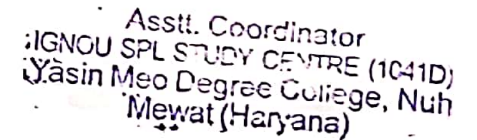 Asstt. Coordinator
IGNOU SPL STUDY CENTRE (1041D)
Yasin Meo Degree College, Nuh
Mewat (Haryana)